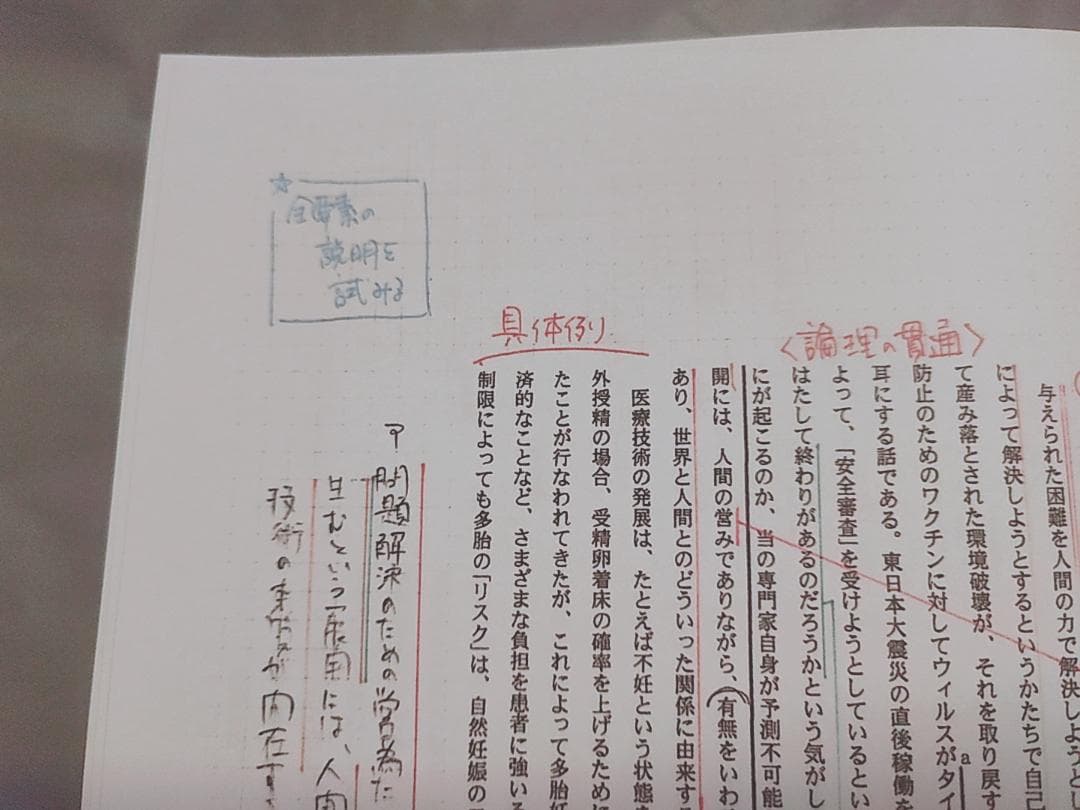 与えられた困難を人間の力で解決しようとし
によって解決しようとするというかたちで自己
て産み落とされた環境破壊が、それを取り戻す
a
防止のためのワクチンに対してウィルスがタイ
耳にする話である。東日本大震災の直後稼働を
よって、「安全審査」を受けようとしているとい
はたして終わりがあるのだろうかという気がし
にが起こるのか、当の専門家自身が予測不可能
開には、人間の営みでありながら、(有無をいわ
あり、世界と人間とのどういった関係に由来する
〈論理の貫通〉
医療技術の発展は、たとえば不妊という状態を
外授精の場合、受精卵着床の確率を上げるために
たことが行なわれてきたが、これによって多胎妊
済的なことなど、さまざまな負担を患者に強いる
制限によっても多胎の「リスク」は、自然妊娠の
具体例り
★
全要素の
説明を
試みる
ア
問題解決のための営為た
生むという展開には、人間
技術の本質が内在す